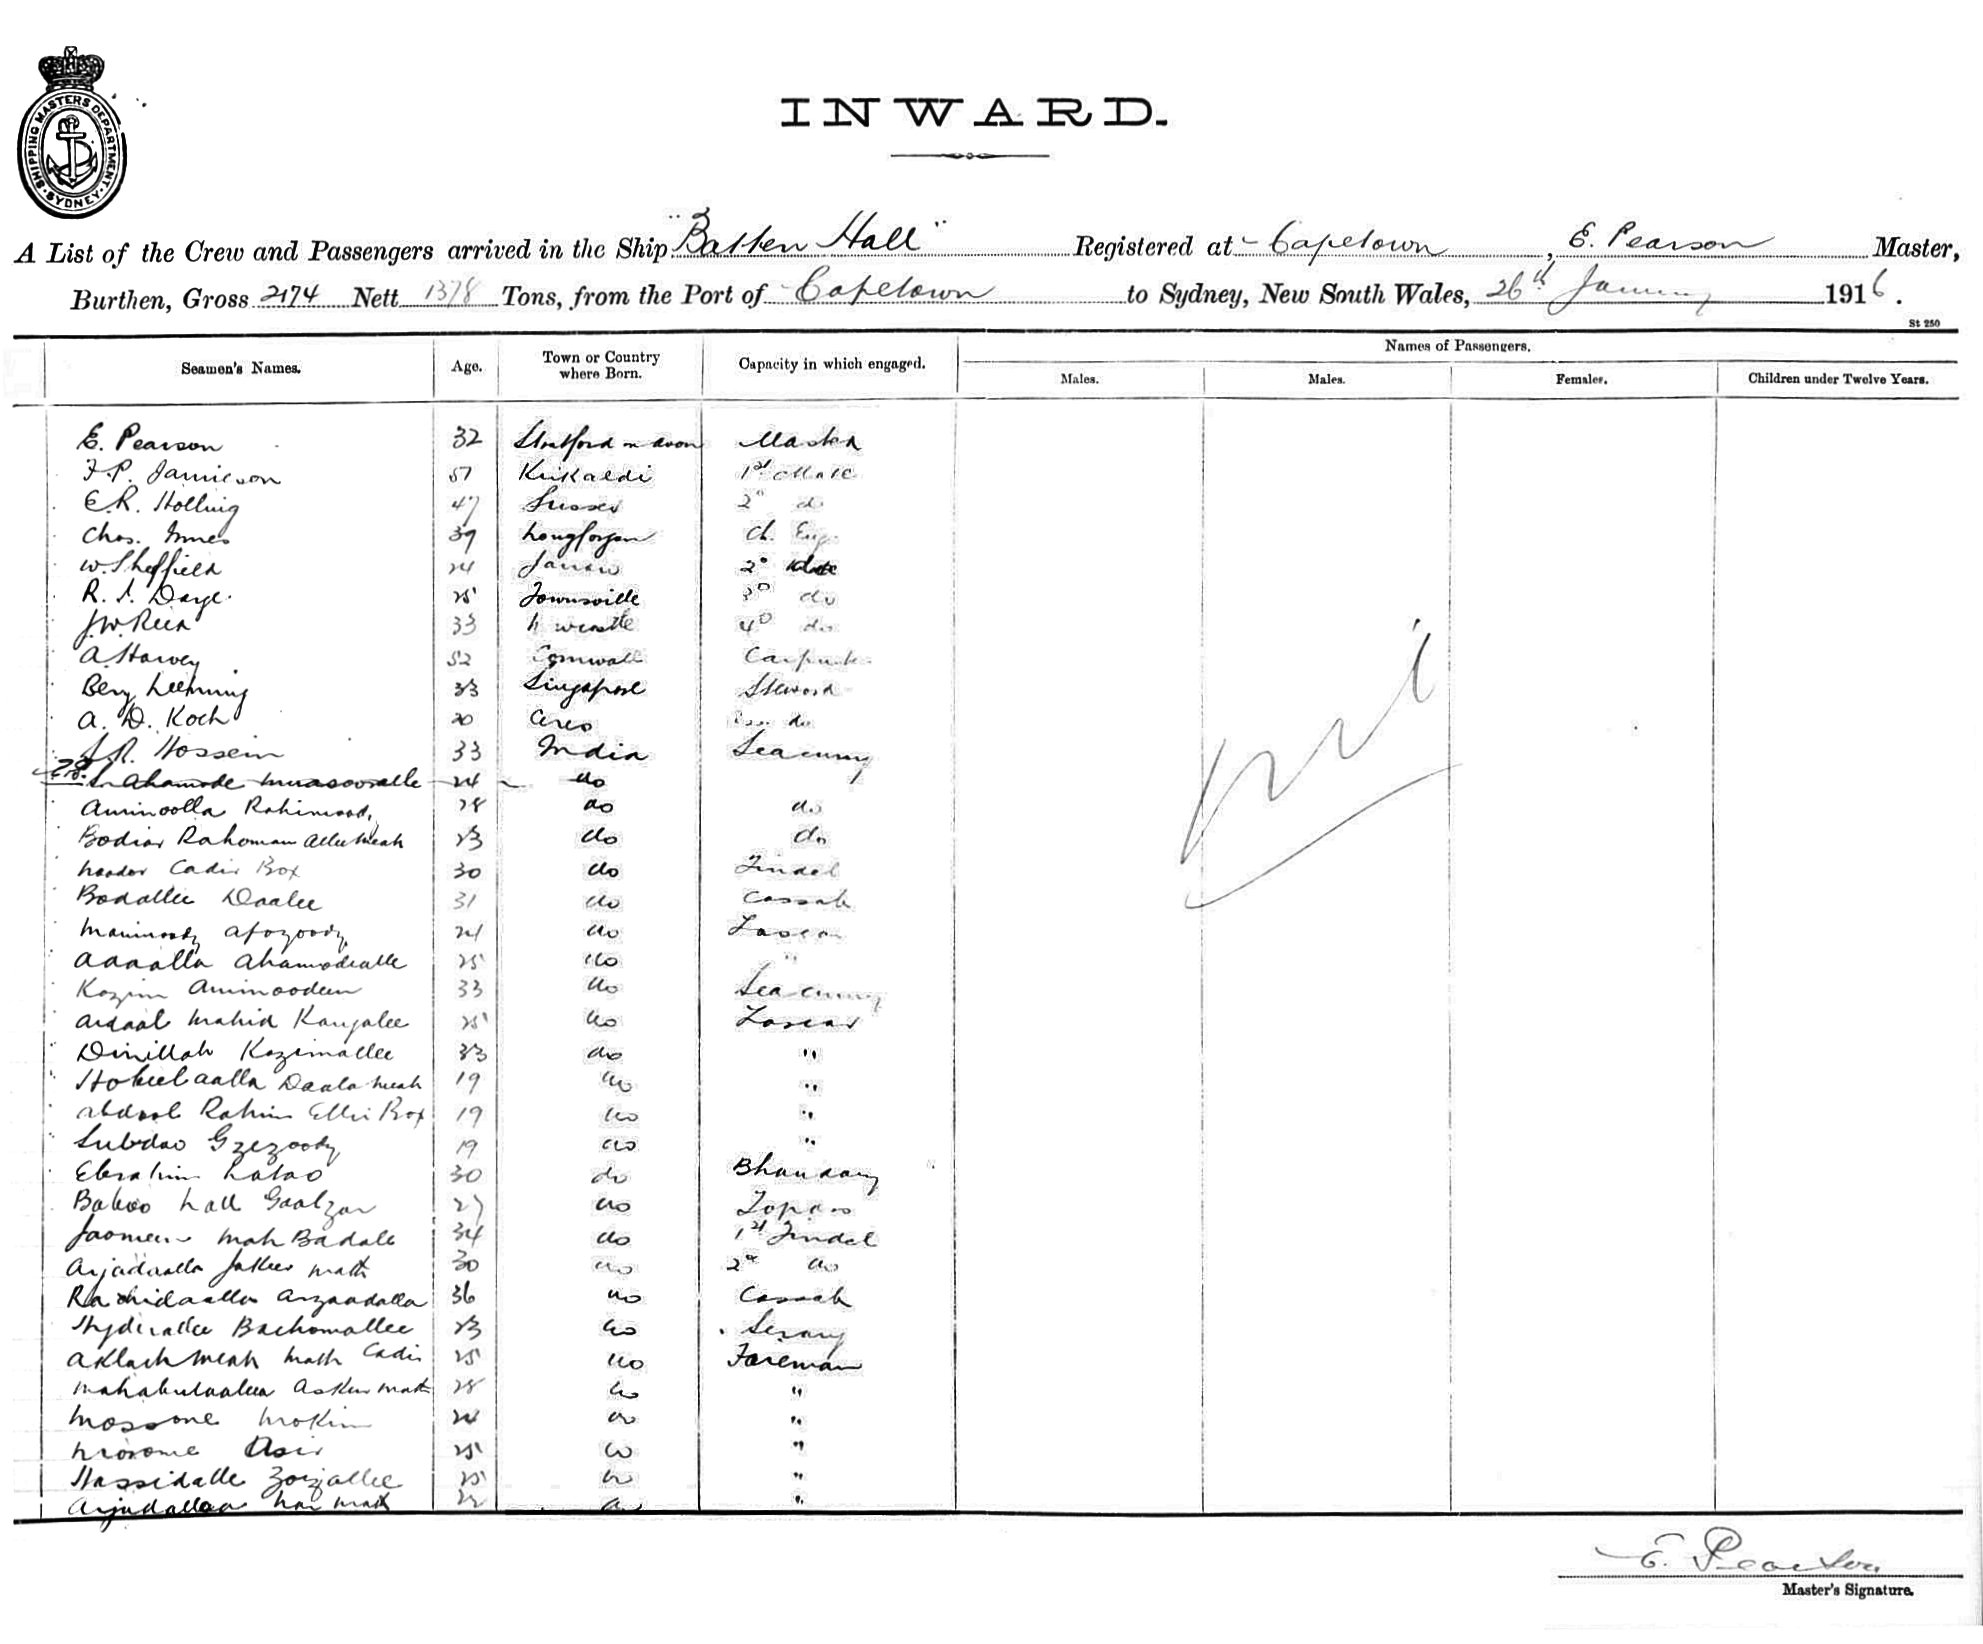 SHIPPING MASTERS DEPARTMENT
SYDNEY
INWARD.
A List of the Crew and Passengers arrived in the Ship "Batten Hall" Registered at Capetown, E. Pearson Master,
Burthen, Gross 2174 Nett 1378 Tons, from the Port of Capetown to Sydney, New South Wales, 26th January 1916.
St 250
Names of Passengers.
Seamen's Names. Age. Town or Country where Born. Capacity in which engaged. Males. Males. Females. Children under Twelve Years.
E. Pearson 32 Stratford on avon Master
F.P. Jamieson 51 Kirkaldi 1st Mate
E.R. Holling 47 Sussex 2d do
Chas. Innes 39 Longforgan Ch. Eng.
W. Sheffield 24 Jarrow 2d
R. S. Daye 25 Townsville 3d do
J.W. Reid 33 4d do
A. Harvey 52 Cornwall Carpenter
Benj Leeming 33 Singapore Steward
A. D. Koch 20 Ceres Ass. do
S.R. Hossein 33 India Seacunny
24 do
Aminoolla Rohimoody 28 do do
Bodiar Rahoman Allemeah 23 do do
Cadir Box 30 do Tindel
Bodallee Daalee 31 do Cassab
Afozoody 24 do Lascar
Ahamodealle 25 do "
Kazim Aminoodeen 33 do Seacunny
Mahid Kangalee 25 do Lascar
Dinillah Kazimallee 33 do "
Daala meah 19 do "
Abdool Rahim Ellie Box 19 do "
Gzezoody 19 do "
Ebrahim 30 do Bhandary
Baboo Lall Goolzar 27 do Topass
mah Badalle 34 do 1st Tindel
30 do 2d do
Rachidaalla Arzaadalla 36 do Cassab
Hyderallee Bachomallee 23 do Serang
Aklach meah math Cadir 25 do Foreman
28 do "
Mossone Mokim 24 do "
Asir 25 do "
Hassidalle Zoizallee 25 do "
22 do "
nil
E. Pearson
Master's Signature.